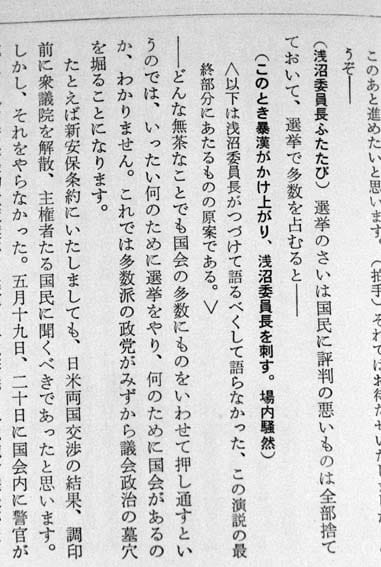 このあと進めたいと思います。（拍手）それではお待たせいたしました。
うぞ――
（浅沼委員長ふたたび）選挙のさいは国民に評判の悪いものは全部捨て
ておいて、選挙で多数を占むると――
（このとき暴漢がかけ上がり、浅沼委員長を刺す。場内騒然）
〈以下は浅沼委員長がつづけて語るべくして語らなかった、この演説の最
終部分にあたるものの原案である。〉
――どんな無茶なことでも国会の多数にものをいわせて押し通すとい
うのでは、いったい何のために選挙をやり、何のために国会があるの
か、わかりません。これでは多数派の政党がみずから議会政治の墓穴
を堀ることになります。
たとえば新安保条約にいたしましても、日米両国交渉の結果、調印
前に衆議院を解散、主権者たる国民に聞くべきであったと思います。
しかし、それをやらなかった。五月十九日、二十日に国会内に警官が